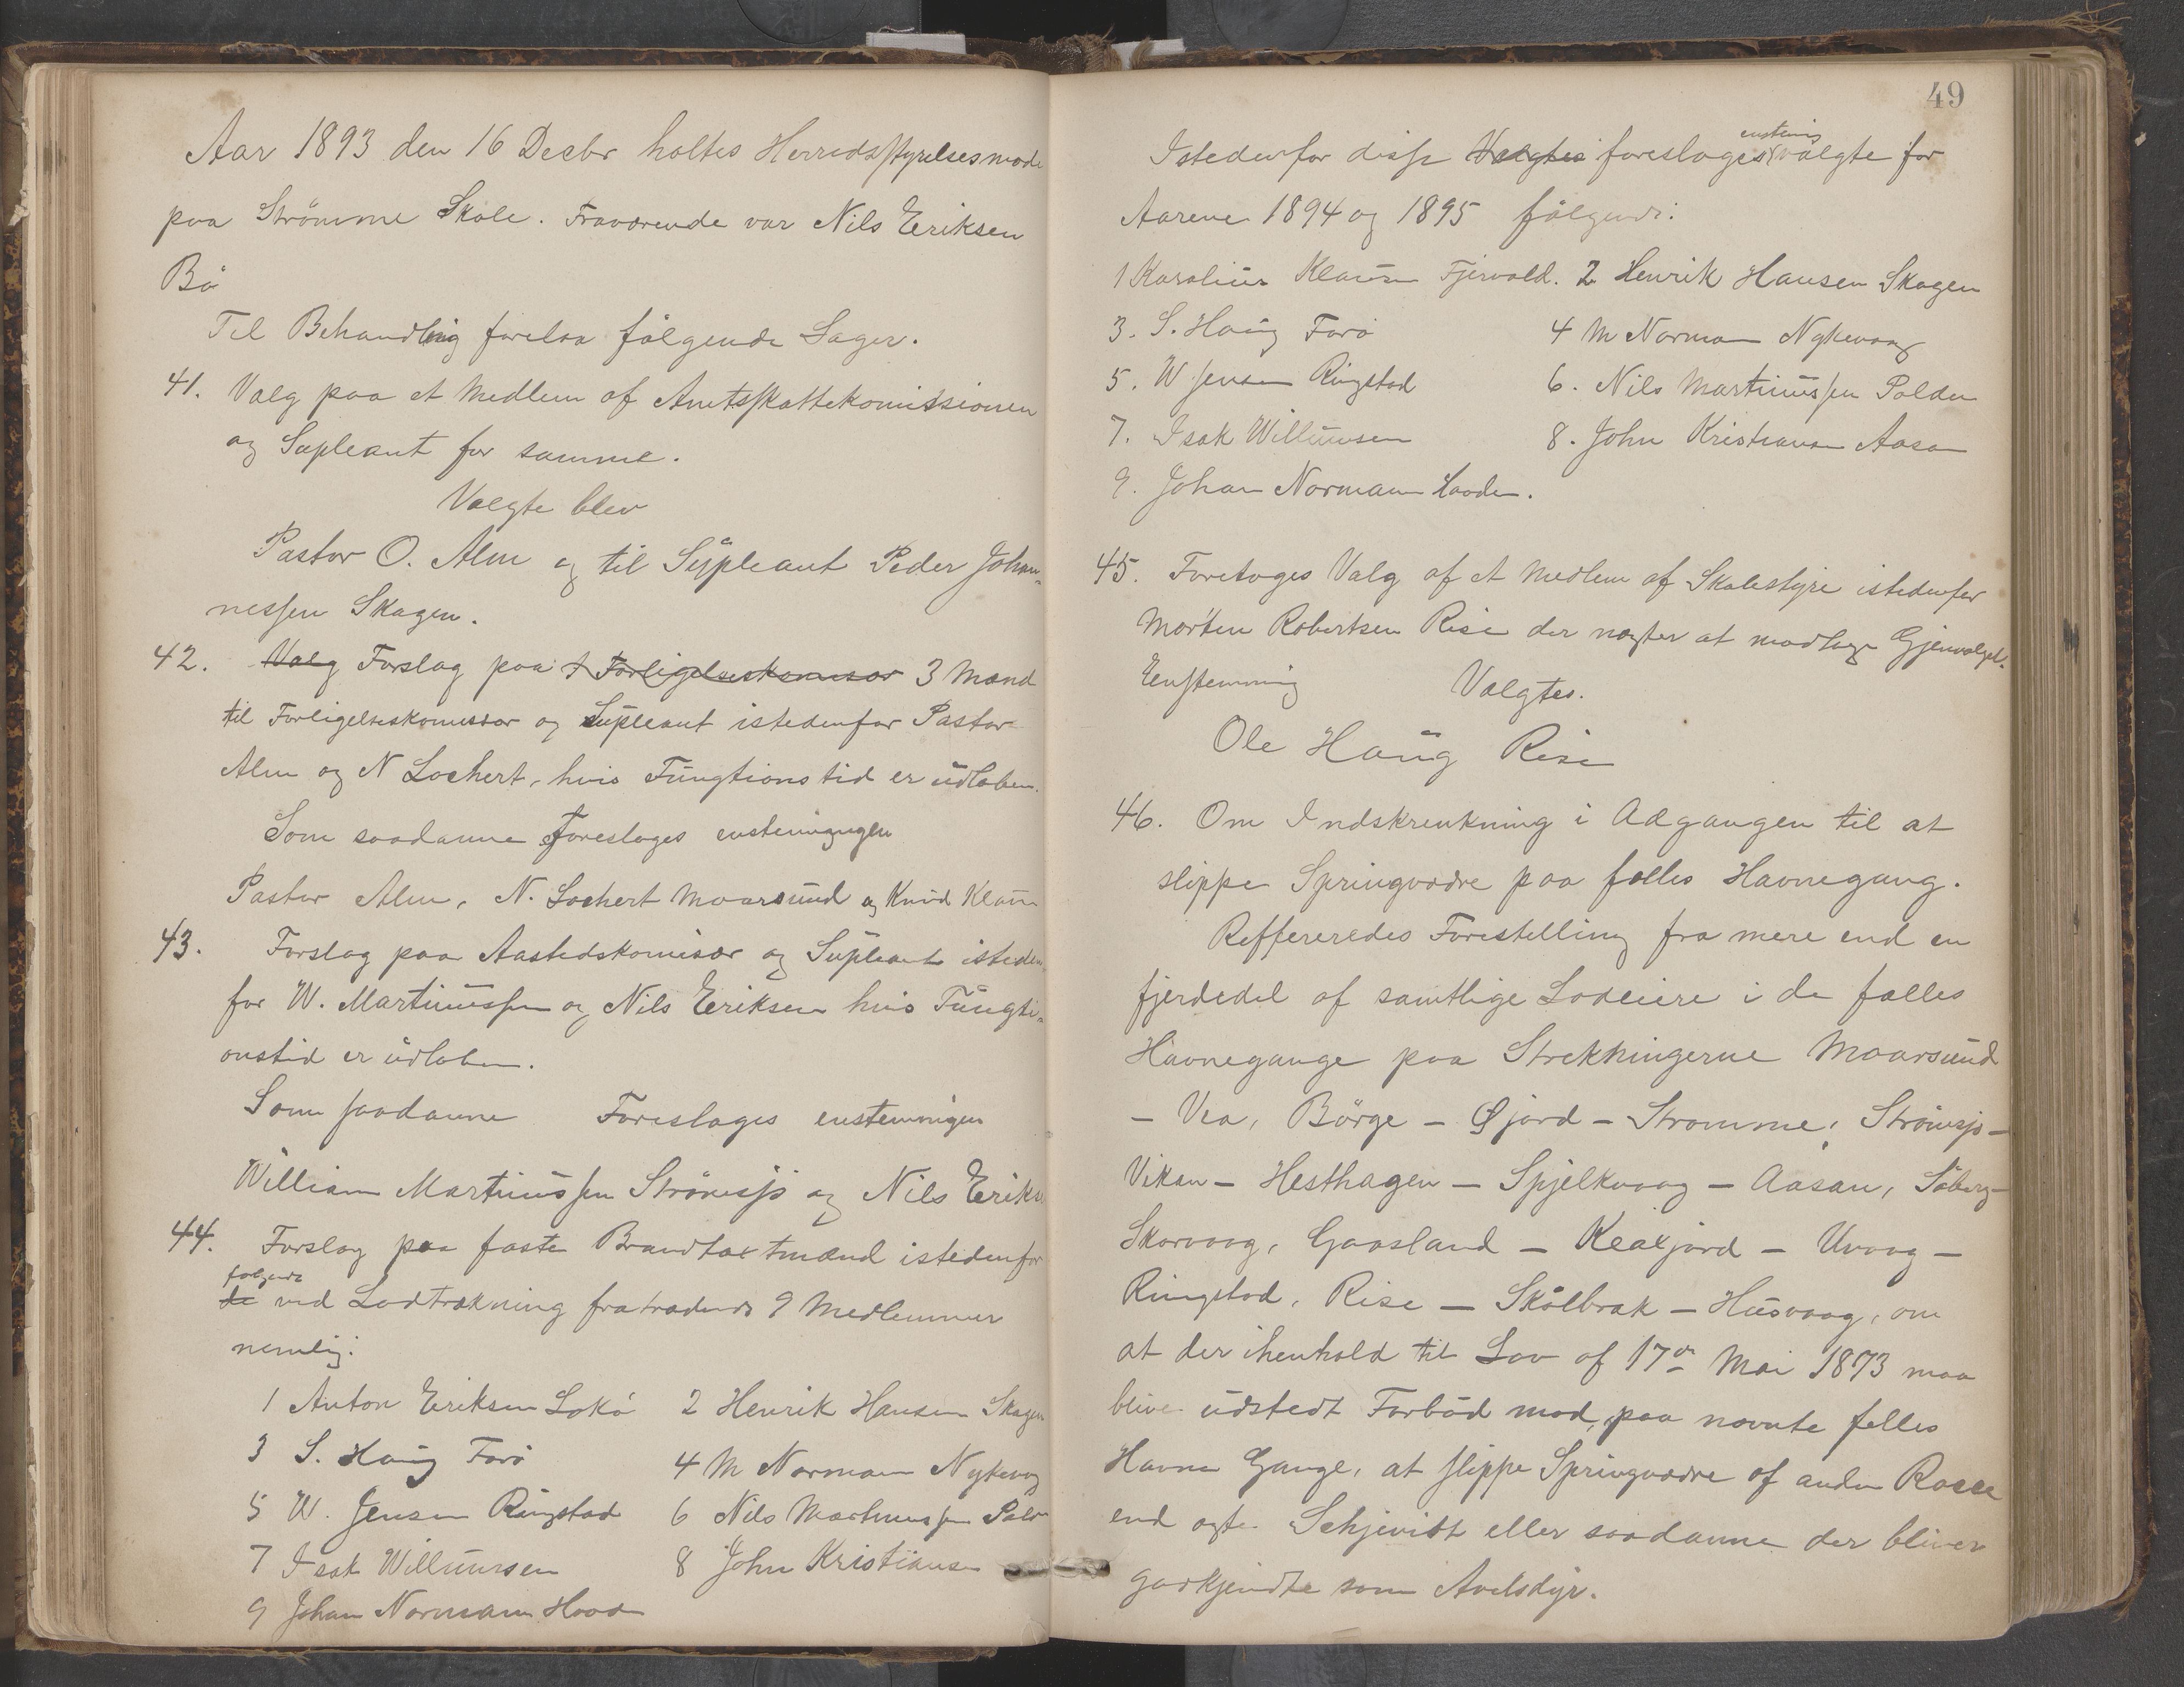 Aar 1893 den 16 Decbr holtes Herredsstyrelsesmøde
paa Strömme Skole. Fraværende var Nils Eriksen
Bö
Til Behandling forelaa fölgende Sager.
41. Valg paa et Medlem af Amtsskattekomissionen
og Supleant for samme.
Valgte blev
Pastor O. Alm og til Supleant Peder Johan-
nessen Skagen.
42. Valg Forslag paa 1 Forligelseskomisær 3 Mænd
til Forligelseskomissær og Supleant istedenfor Pastor
Alm og N Lochert, hvis Fungtionstid er udløben.
Som saadanne foreslages
Pastor Alm, N. Lochert Maarsund og Knud Klau
43. Forslag paa Aastedskomisær og Supleant isteden-
for W. Martinussen og Nils Eriksen hvis Fungti-
onstid er udløben.
Som saadanne Foreslages enstemmigen
William Martinussen Strömsjö og Nils Eriks
44. Forslag paa faste Brandtaxtmænd istedenfor
følgende
de ved Lodtrækning fratrædende 9 Medlemmer
nemlig:
1 Anton Eriksen Lokö 2 Henrik Hansen Skagen
3 S. Haug Forö 4 M Norman Nykvaag
5 W. Jensen Ringstad 6 Nils Martinussen Pald
7 Isak Willumsen 8 John Kristiansen
9 Johan Normann
49
enstemig
Istedenfor disse Valgtes foreslages valgte for
Aarene 1894 og 1895 fölgende:
1 Karolius Klausen Fjervold. 2 Henrik Hansen Skagen
3. S. Haug Forö 4 M Norman Nykevaag
5. W Jensen Ringstad 6. Nils Martinussen Polden
7. Isak Willumsen 8. John Kristiansen Aasan
9. Johan Normann
45. Foretages Valg af et Medlem af Skolestyre istedenfor
Morten Robertsen Rise der nægter at modtage Gjenvalget.
Enstemmig Valgtes.
Ole Haug Rise
46. Om Indskrenkning i Adgangen til at
slippe Springvædre paa fælles Havnegang.
Reffereredes Forestelling fra mere end en
fjerdedel af samtlige Lodeiere i de fælles
Havnegange paa Strekningerne Maarsund
– Vea, Börge – Gjørd – Strømme, Strömsjö –
Vikan – Hesthagen – Spjelkvaag – Aasan, Söberg –
Skorvaag, Gaasland – – Uvaag –
Ringstad, Rise – Skålbrak – Husvaag, om
at der ihenhold til Lov af 17de Mai 1873 maa
blive udstedt Forbud mod, paa nævnte felles
Havne Gange, at slippe Springvædre af anden Race
end ægte Schjeviot eller saadanne der bliver
godkjendte som Avelsdyr.